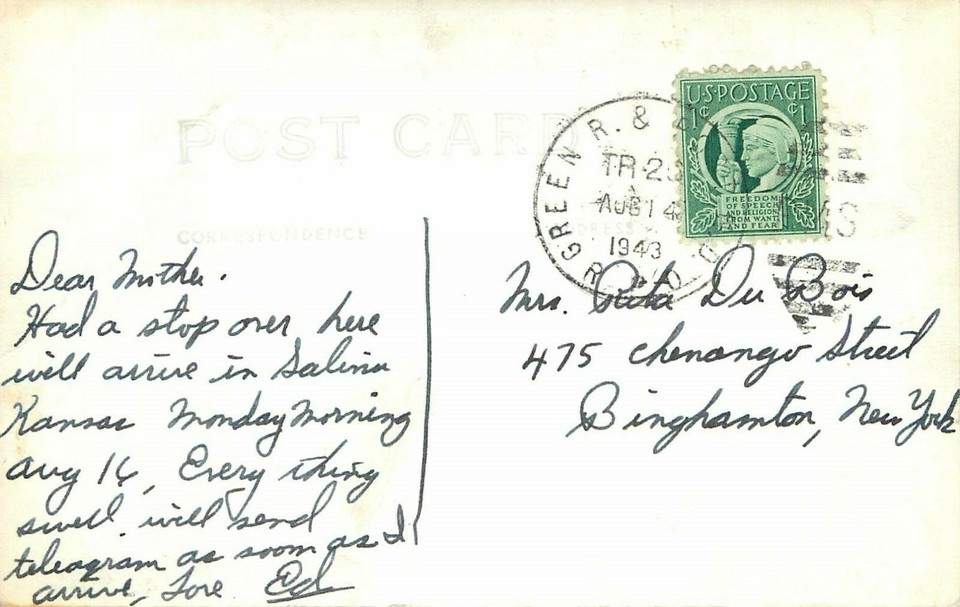 POST CARD
CORRESPONDENCE
ADDRESS
GREEN R. &
TR. 2
AUG 14
1943
R.P.O.
U.S. POSTAGE
1¢ ¢1
FREEDOM
OF SPEECH
AND RELIGION,
FROM WANT
AND FEAR
Dear Mother.
Had a stop over here
will arrive in Salina
Kansas Monday Morning
Aug 16, Every thing
swell. will send
teleagram as soon as I
arrive, Love Ed
Mrs. Rita Du Bois
475 Chenango Street
Binghamton, New York